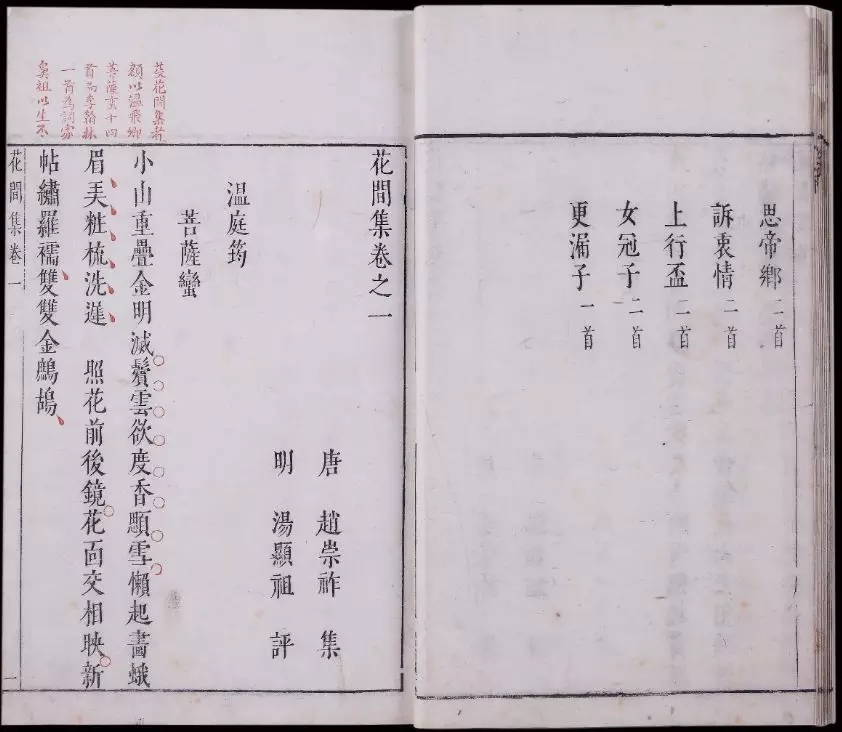 思帝鄉 二首
訴衷情 二首
上行盃 二首
女冠子 二首
更漏子 一首
芟花間集者
額以溫飛卿
菩薩蠻十四
首而李翰林
一首為詞家
鼻祖以生不
花間集卷之一
唐 趙崇祚 集
明 湯顯祖 評
温庭筠
菩薩蠻
小山重疊金明滅鬢雲欲度香顋雪懶起畫蛾
眉弄粧梳洗遲 照花前後鏡花面交相映新
帖繡羅襦雙雙金鷓鴣
花間集卷一 一